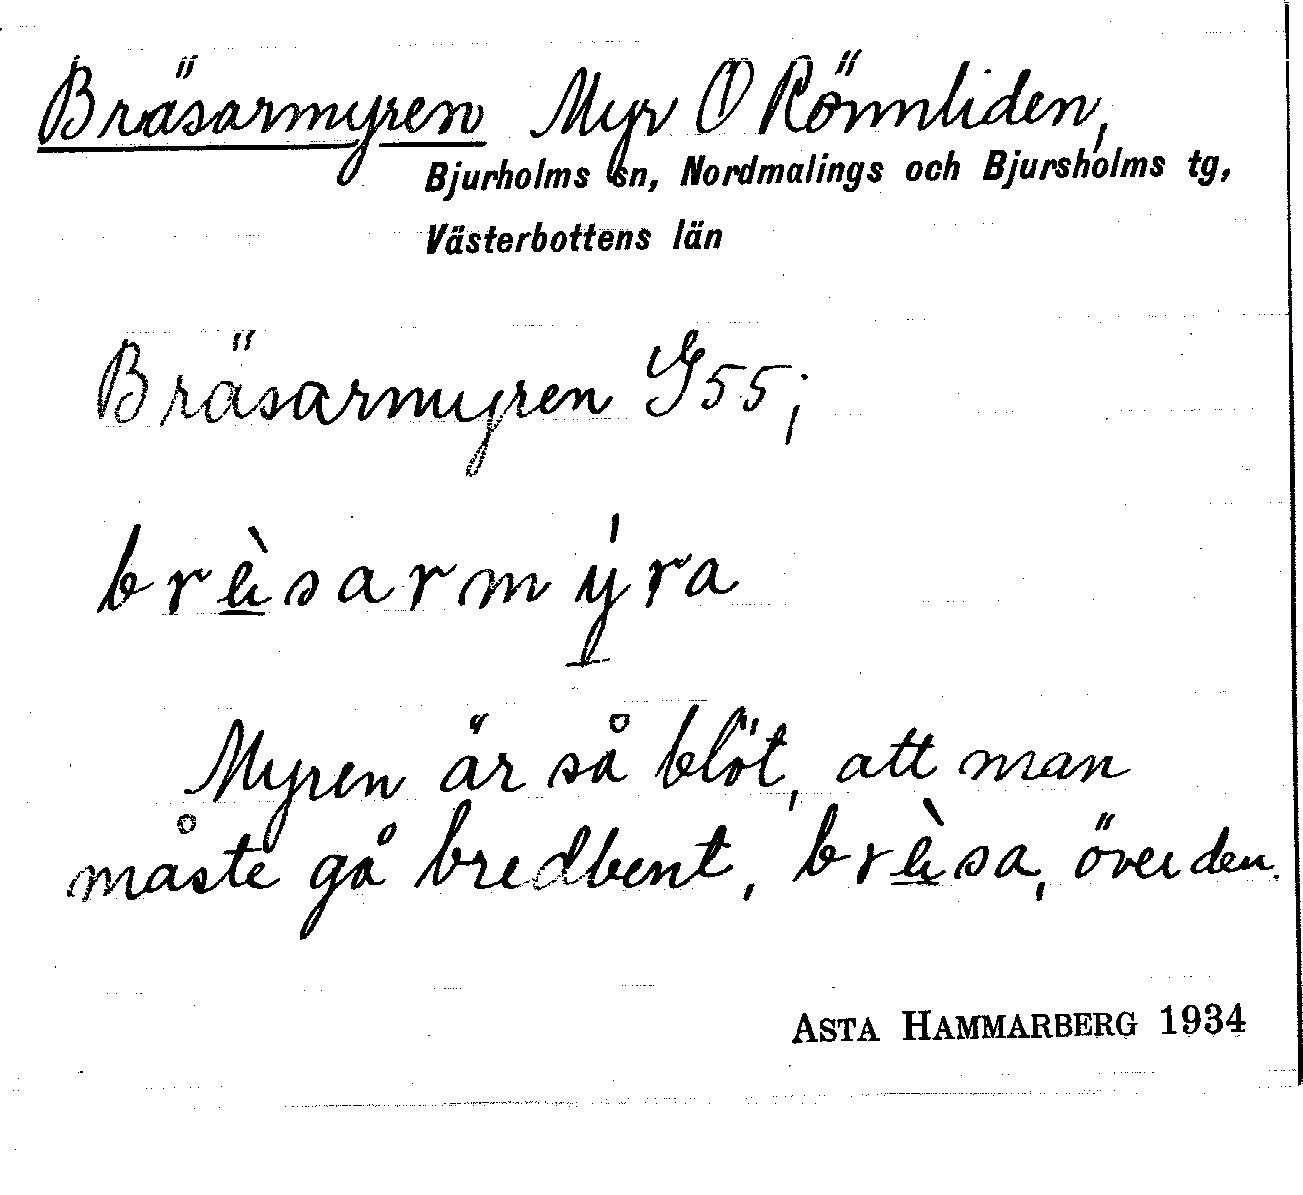 Bräsarmyren Myr O Rönnliden,
Bjurholms sn, Nordmalings och Bjursholms tg,
Västerbottens län
Bräsarmyren G55;
brèsarmýra
Myren är så blöt, att man
måste gå bredbent, brèsa, över den.
ASTA HAMMARBERG 1934